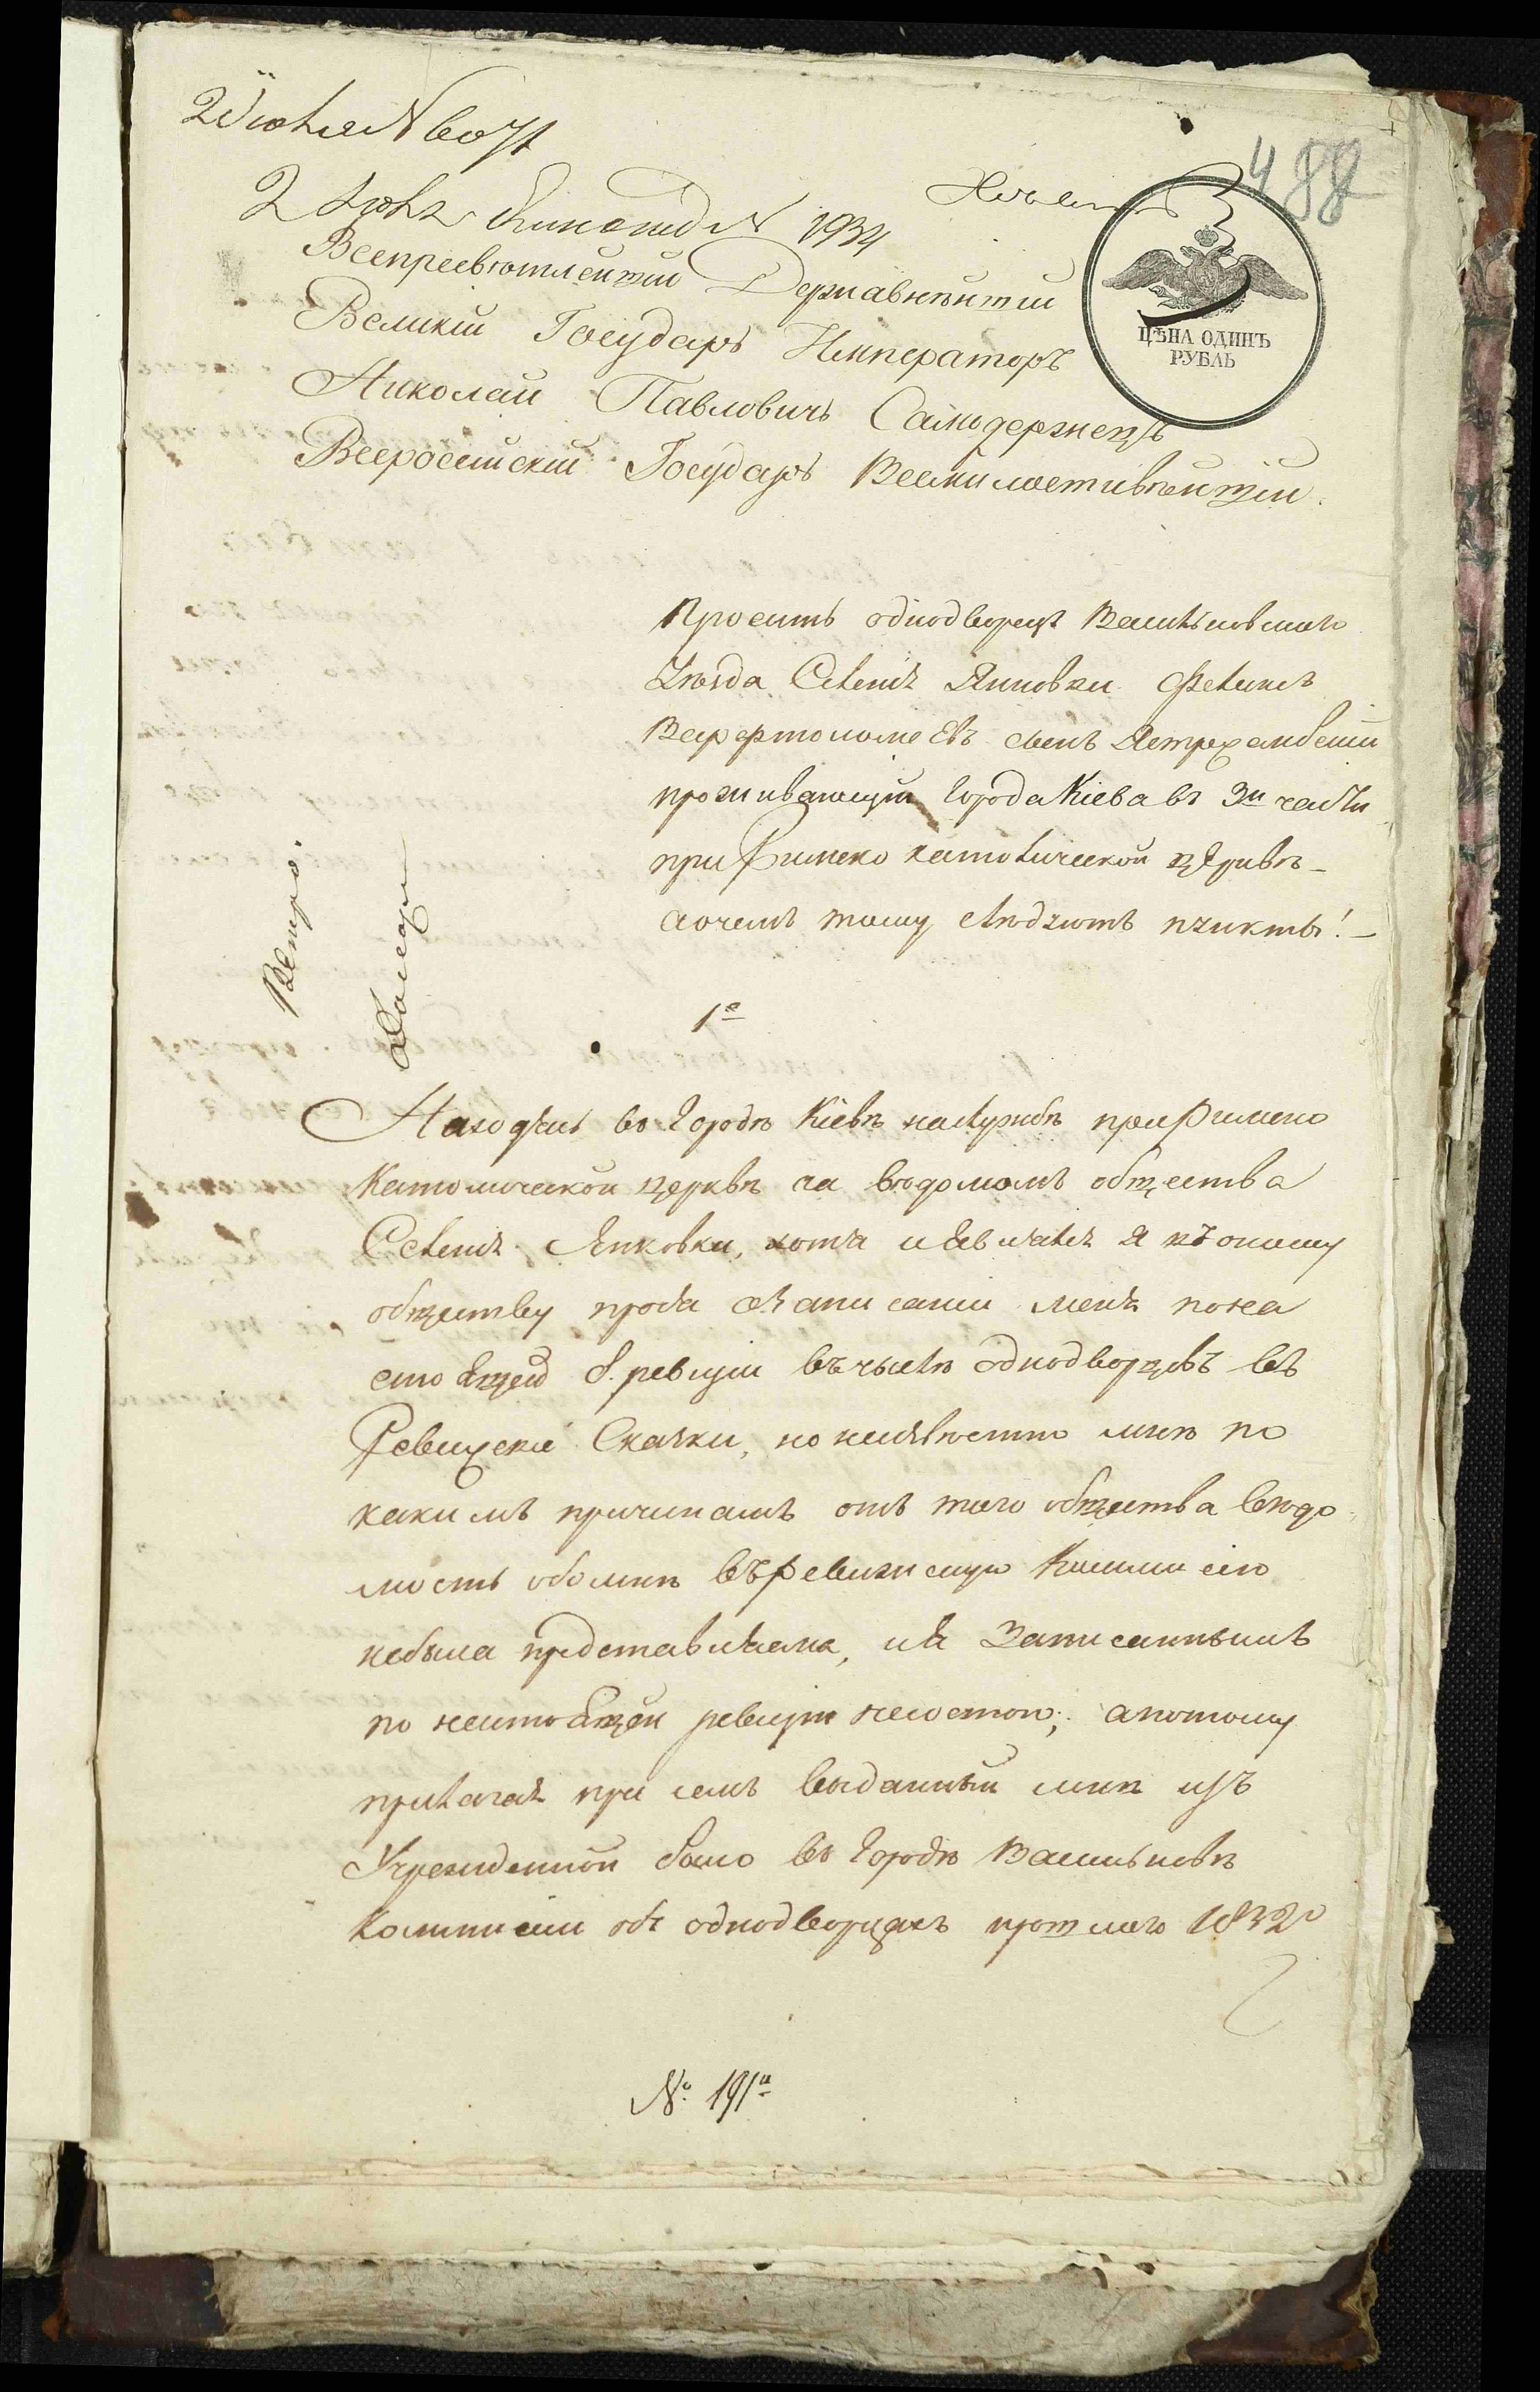 488
2 Июня N 6071
2 Июня N 1934
ЦѢНА ОДИНЪ
РУБЛЬ
Всепресвѣтлѣйшій Державнѣйшій
Великій Государь Императоръ
Николай Павловичь Самодержецъ
Всеросейскій Государь Всемилостивѣйшій.
Просить однодворецъ Васильковскаго
Уѣзда Селенія Янковки Феликсъ
Варфоломеевъ сынъ Ястржембский
проживающій города Кіева въ 3й части
при Римско католической церквѣ _
а о чемъ тому слѣдуютъ пункты! _
1е
Находясь въ Городѣ Кіевѣ на службѣ при Римско
Католической церквѣ са вѣдомомъ общества
Селенія Янковки, хотя и являлся я къ оному
обществу прося о записаніи меня по на
стоящей 8. ревизіи въ число однодворцовъ въ
Ревизскія Скаски, но неизвѣстно мнѣ по
какимъ причинамъ отъ того общества вѣдо
мость обо мнѣ въ Ревизскую Комиссію
небыла представляема, и я записаннымъ
по настоящей ревизіи неостою; а потому
прилагая при семъ выданный мнѣ изъ
Учрежденной было въ Городѣ Васильковѣ
Коммисіи объ однодворцахъ прошлаго 1832го
№ 191й